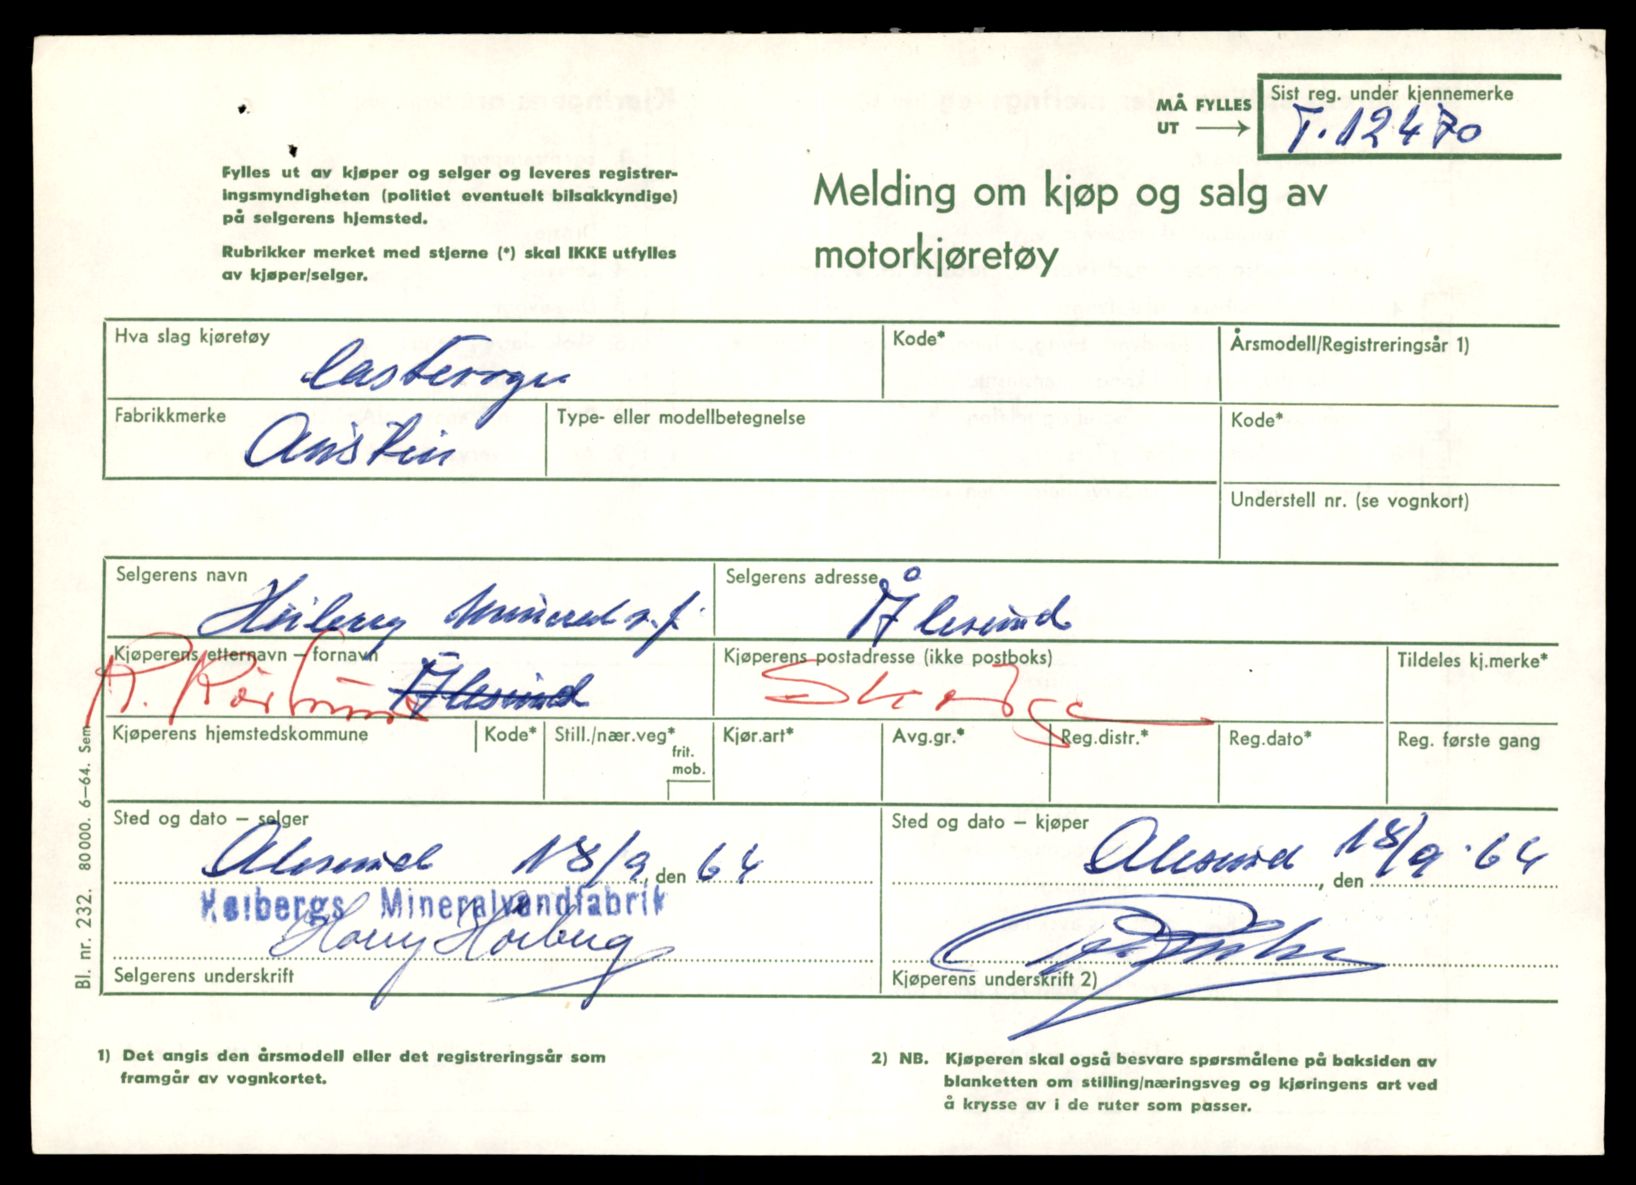 MÅ FYLLES
UT
Sist reg. under kjennemerke
T. 12470
Fylles ut av kjøper og selger og leveres registrer-
ingsmyndigheten (politiet eventuelt bilsakkyndige)
på selgerens hjemsted.
Rubrikker merket med stjerne (*) skal IKKE utfylles
av kjøper/selger.
Melding om kjøp og salg av
motorkjøretøy
Hva slag kjøretøy
Kode*
Årsmodell/Registreringsår 1)
Lastevogn
Fabrikkmerke
Type- eller modellbetegnelse
Kode*
Austin
Understell nr. (se vognkort)
Selgerens navn
Selgerens adresse
Ålesund
Kjøperens etternavn – fornavn
Kjøperens postadresse (ikke postboks)
Tildeles kj.merke*
Ålesund
Kjøperens hjemstedskommune
Kode*
Still./nær.veg*
frit.
mob.
Kjør.art*
Avg.gr.*
Reg.distr.*
Reg.dato*
Reg. første gang
Sted og dato – selger
Sted og dato – kjøper
Ålesund 18/9, den 64
Ålesund, den 18/9.64
Mineralvandfabrik
Selgerens underskrift
Kjøperens underskrift 2)
1) Det angis den årsmodell eller det registreringsår som
framgår av vognkortet.
2) NB. Kjøperen skal også besvare spørsmålene på baksiden av
blanketten om stilling/næringsveg og kjøringens art ved
å krysse av i de ruter som passer.
Bl. nr. 232. 80000. 6–64. Sem